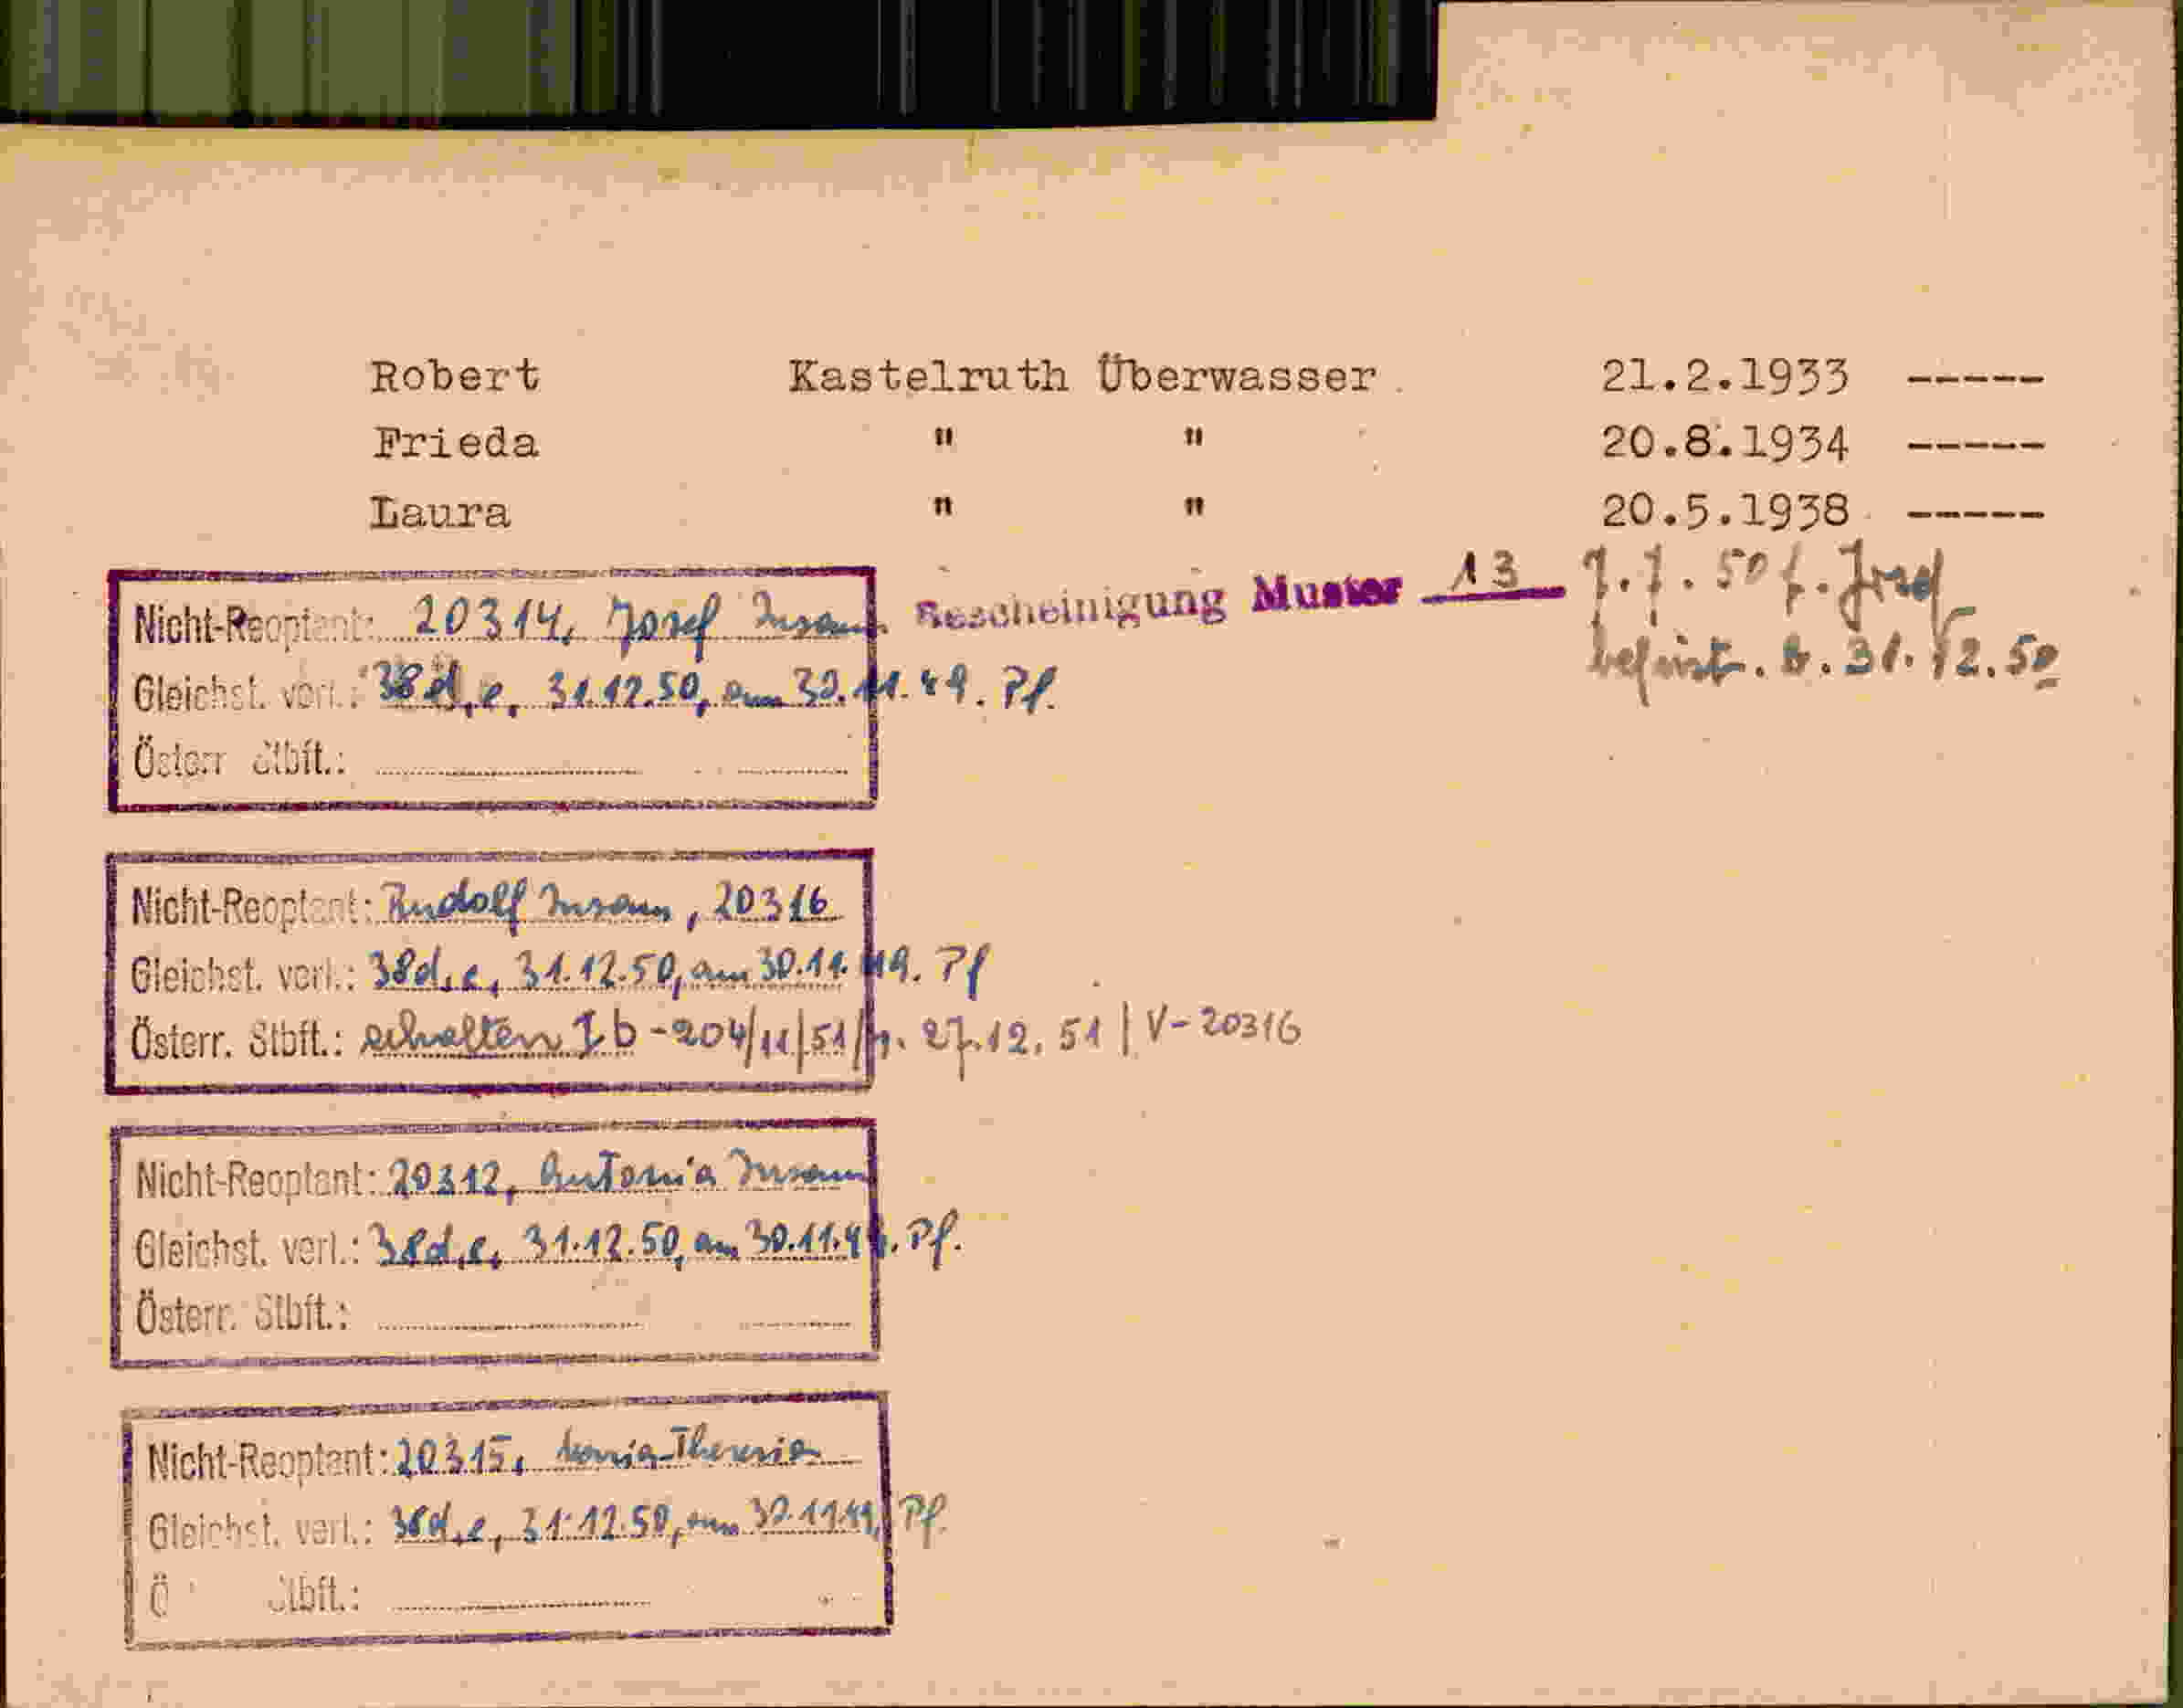 Robert Kastelruth Überwasser 21.2.1933 -----
Frieda " " 20.8.1934 -----
Laura " " 20.5.1938 -----
Bescheinigung Muster 13 7.7.50 f. Josef
befrist. b. 31.12.50
Nicht-Reoptant: 20314, Josef Insam
Gleichst. verl.: 38d,e, 31.12.50, am 30.11.49. Pf.
Österr. Stbft.:
Nicht-Reoptant: Rudolf Insam, 20316
Gleichst. verl.: 38d,e, 31.12.50, am 30.11.49. Pf
Österr. Stbft.: erhalten I b-204/11/51/ 27.12.51 | V-20316
Nicht-Reoptant: 20312, Antonia Insam
Gleichst. verl.: 38d,e, 31.12.50, am 30.11.49. Pf.
Österr. Stbft.:
Nicht-Reoptant: 20315, Theresia
Gleichst. verl.: 38d,e, 31.12.50, am 30.11.49, Pf.
Ö Stbft.: